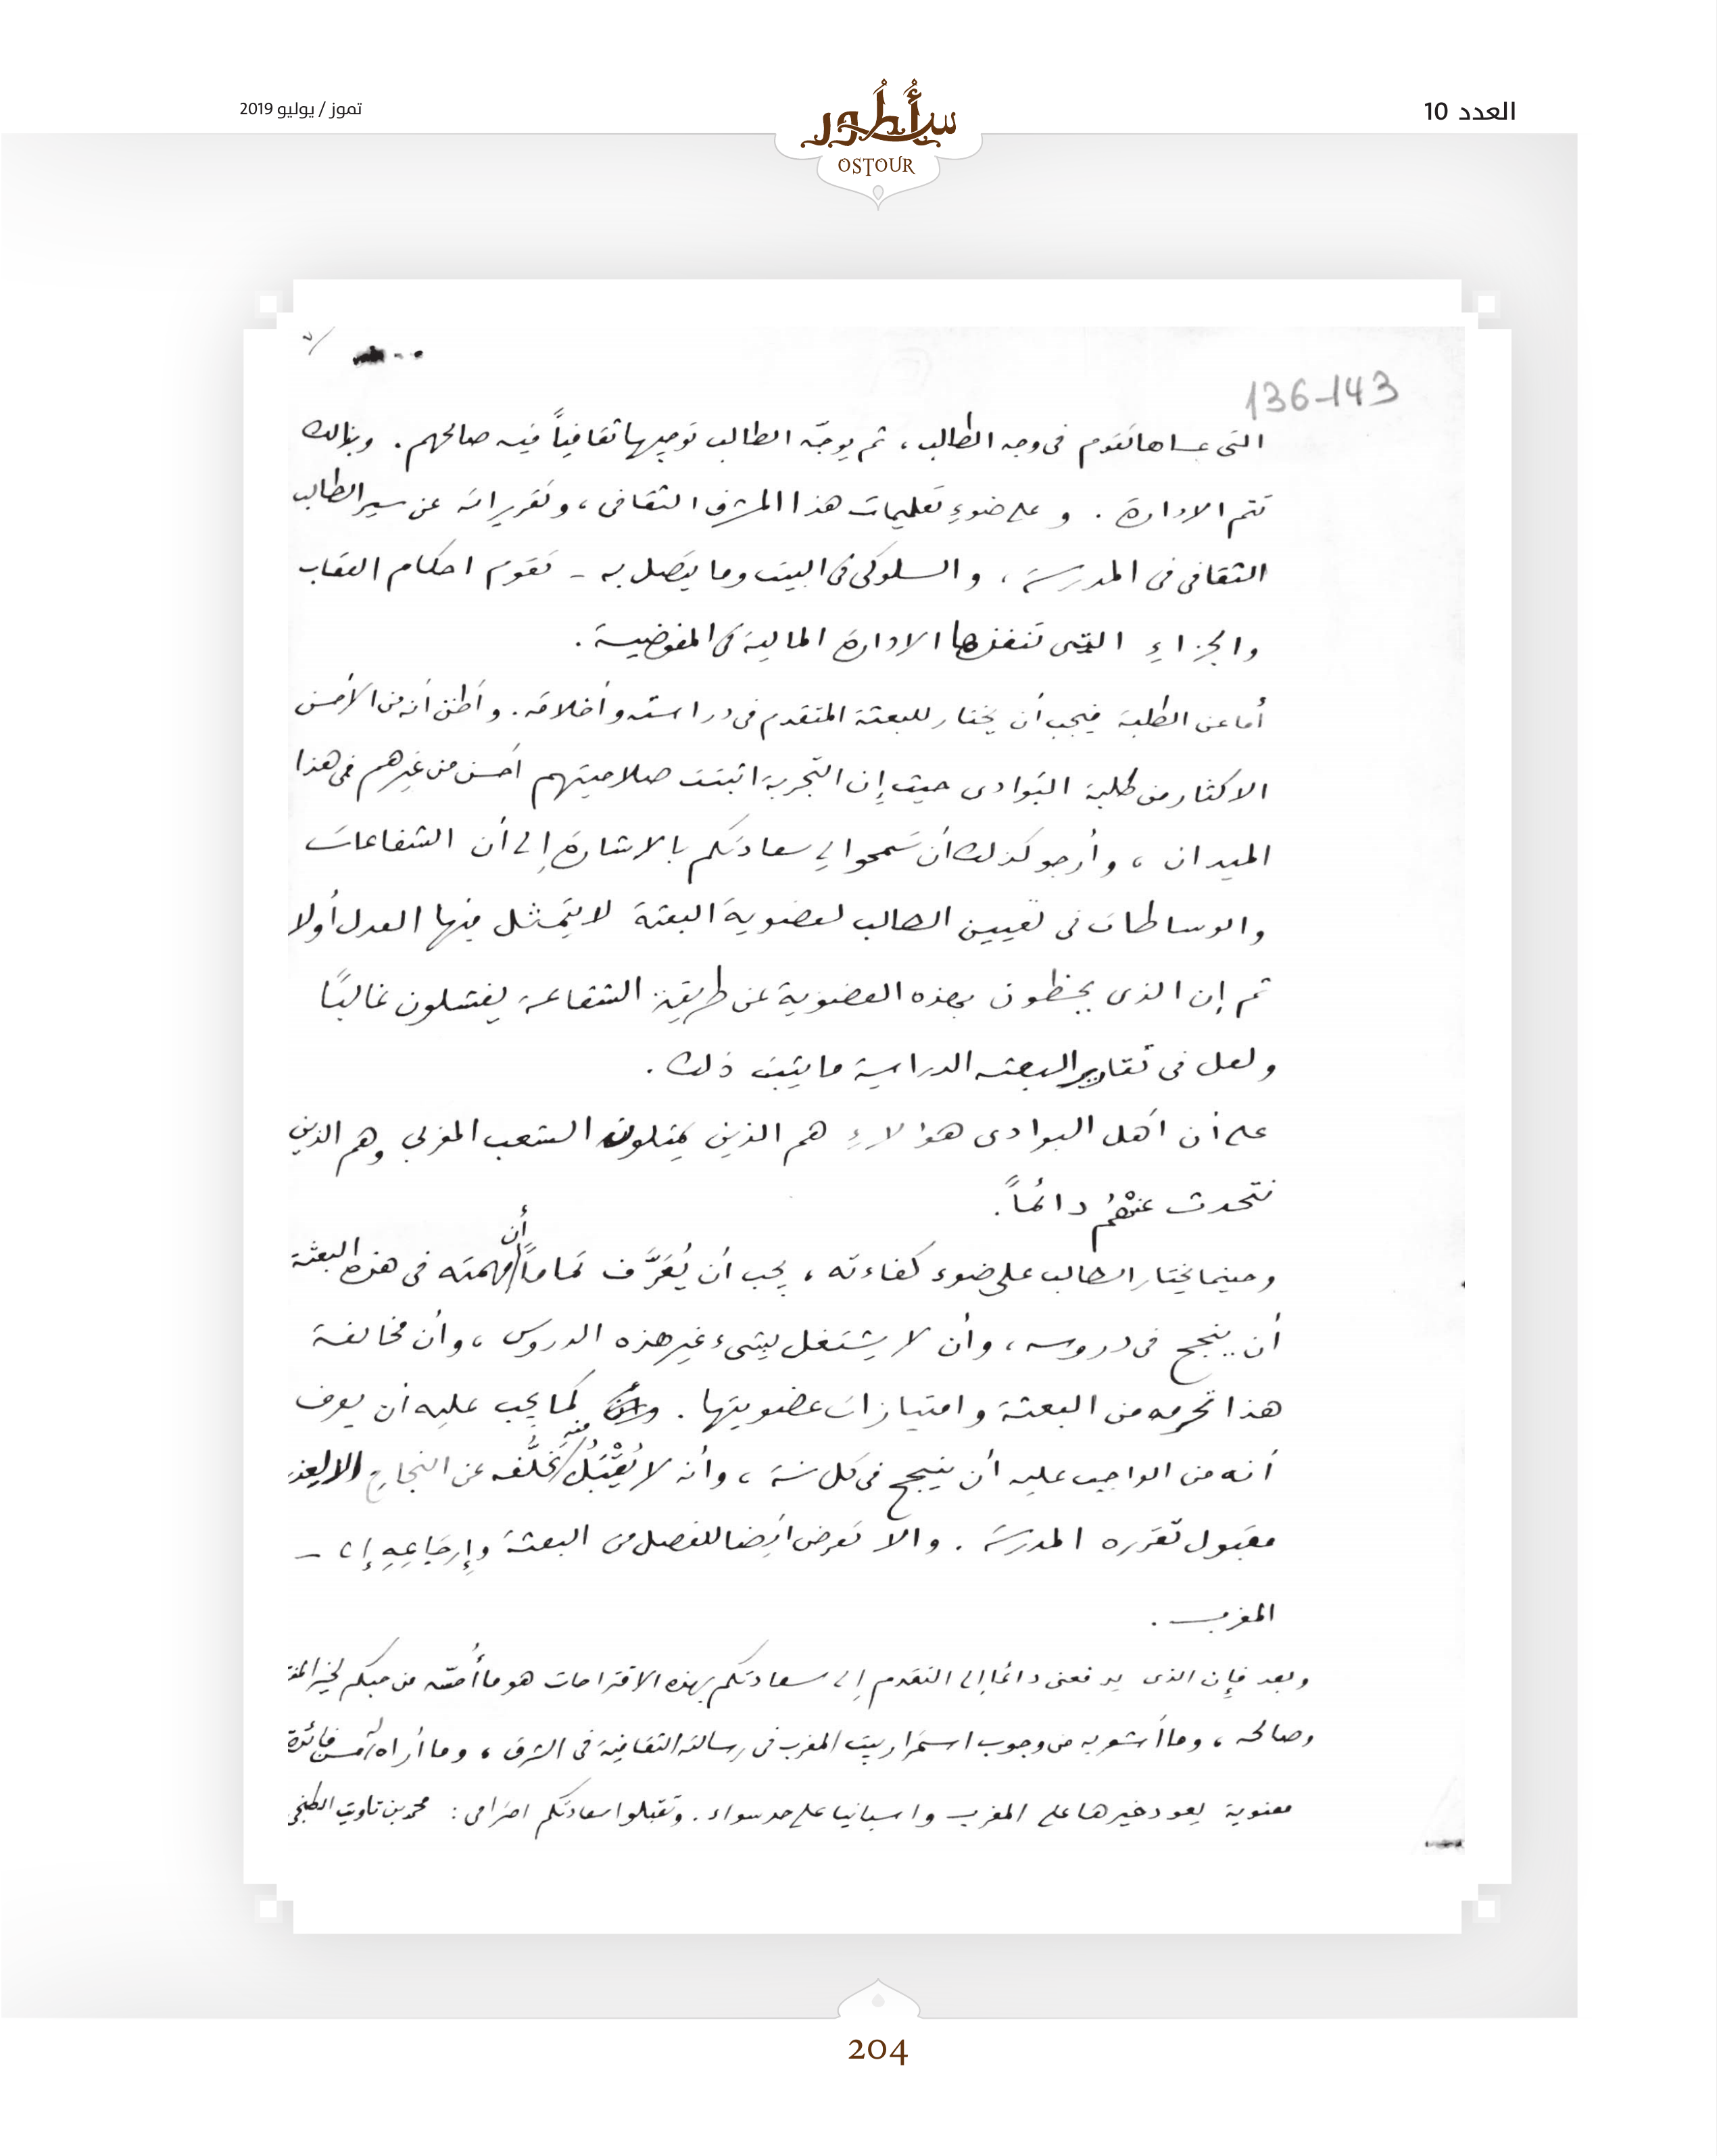 العدد 10
تموز / يوليو 2019
أسطور
OSTOUR
136-143
التى عساها تقوم فى وجه الطالب ، ثم يوجّه الطالب توجيها ثقافياً فيه صالحهم . وبذالك
تتم الادارة . و على ضوءِ تعليمات هذا المشرف الثقافى ، و تقريراته عن سير الطالب
الثقافى فى المدرسة ، و السلوكى فى البيت وما يتصل به - تقوم احكام العقاب
والجزاءِ التى تنفذها الادارة المالية فى المفوضية .
أما عن الطلبة فيجب أن يختار للبعثة المتقدم فى دراسته وأخلاقه . وأظن أنه من الأحسن
الاكثار من طلبة البوادى حيث إن التجربة اثبتت صلاحيتهم أحسن من غيرهم فى هذا
الميدان ، وأرجو كذلك أن تسمحوا لي سعادتكم بالاشارة إلى أن الشفاعات
والوساطات فى تعيين الطالب لعضوية البعثة لا يتمثل فيها العدل أولا
ثم إن الذى يحظون بهذه العضوية عن طريق الشفاعة يفشلون غالباً
ولعل فى تقارير البعثه الدراسية ما يثبت ذلك .
على أن أهل البوادى هؤلاءِ هم الذين يمثلون الشعب المغربى وهم الذين
نتحدث عنهُم دائماً .
وحينما يختار الطالب على ضوء كفاءته ، يجب أن يُعَرَّف تماماً أن مهمته فى هذه البعثة
أن ينجح فى دروسه ، وأن لا يشتغل بشىء غير هذه الدروس ، وأن مخالفة
هذا تحرمه من البعثة و امتيازات عضويتها . كما يجب عليه أن يعرف
أنه من الواجب عليه أن ينجح فى كل سنة ، وأنه لا يُقْبَلُ منه تخلُّفه عن النجاح إلا لعذر
مقبول تقرره المدرسة . والا تعرض أيضا للفصل من البعثة وإرجاعه إلى -
المغرب .
وبعد فإن الذى يدفعنى دائما إلى التقدم إلى سعادتكم بهذه الاقتراحات هو ما أحسّه من حبكم لخير المغر
وصالحه ، وما أشعر به من وجوب استمرار بيت المغرب فى رسالته الثقافية فى الشرق ، وما أراه من فائدة
معنوية يعود خيرها على المغرب و اسبانيا على حد سواء . وتقبلوا سعادتكم احترامى : محمد بن تاويت الطنجى
204